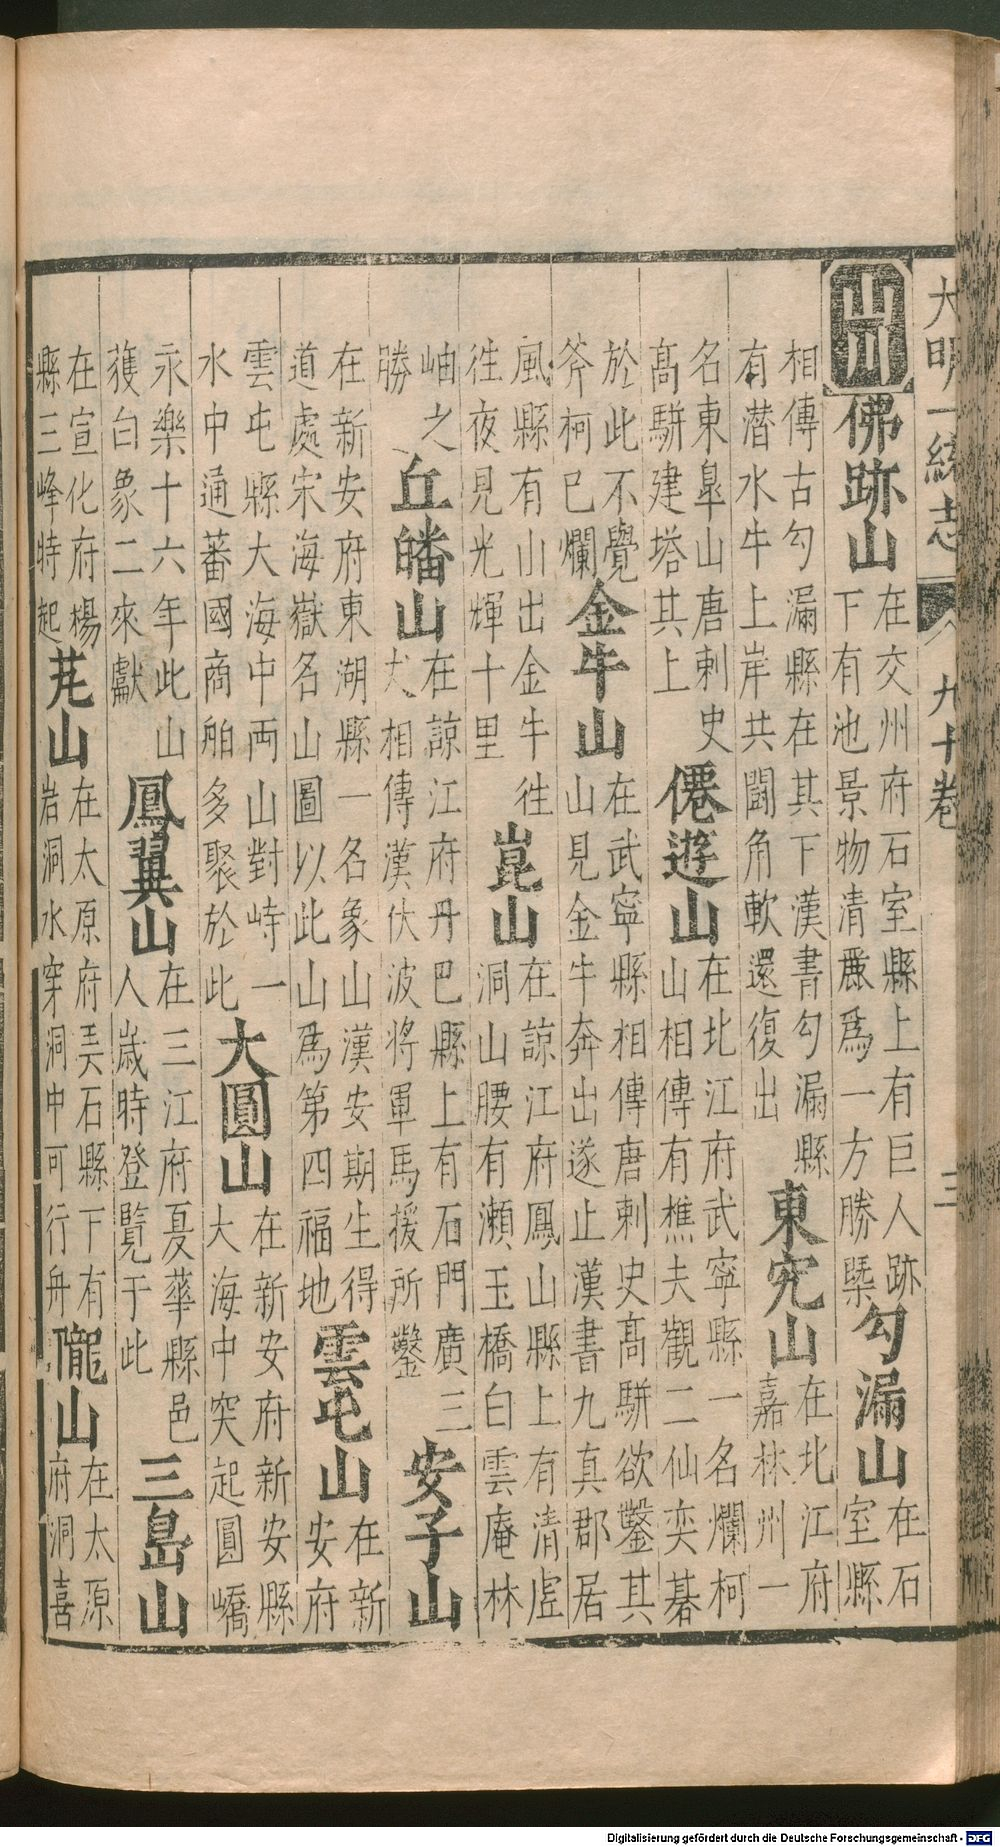 大明一統志 九十卷 三
山川 佛跡山 在交州府石室縣上有巨人跡下有池景物清麗爲一方勝槩 勾漏山 在石室縣
相傳古勾漏縣在其下漢書勾漏縣有潜水牛上岸共鬭角軟還復出 東究山 在北江府嘉林州一
名東皐山唐剌史高駢建塔其上 僊遊山 在北江府武寧縣一名爛柯山相傳有樵夫觀二仙奕碁
於此不覺斧柯已爛 金牛山 在武寧縣相傳唐剌史高駢欲鑿其山見金牛奔出遂止漢書九真郡居
風縣有山出金牛徃徃夜見光輝十里 崑山 在諒江府鳳山縣上有清虛洞山腰有瀨玉橋白雲庵林
岫之勝 丘皤山 在諒江府丹巴縣上有石門廣三丈相傳漢伏波將軍馬援所鑿 安子山
在新安府東湖縣一名象山漢安期生得道處宋海嶽名山圖以此山爲第四福地 雲屯山 在新安府
雲屯縣大海中兩山對峙一水中通蕃國商舶多聚於此 大圓山 在新安府新安縣大海中突起圓嶠
永樂十六年此山獲白象二來獻 鳳翼山 在三江府夏華縣邑人歲時登覽于此 三島山
在宣化府楊縣三峰特起 山 在太原府弄石縣下有岩洞水穿洞中可行舟 山 在太原府洞喜
Digitalisierung gefördert durch die Deutsche Forschungsgemeinschaft - DFG